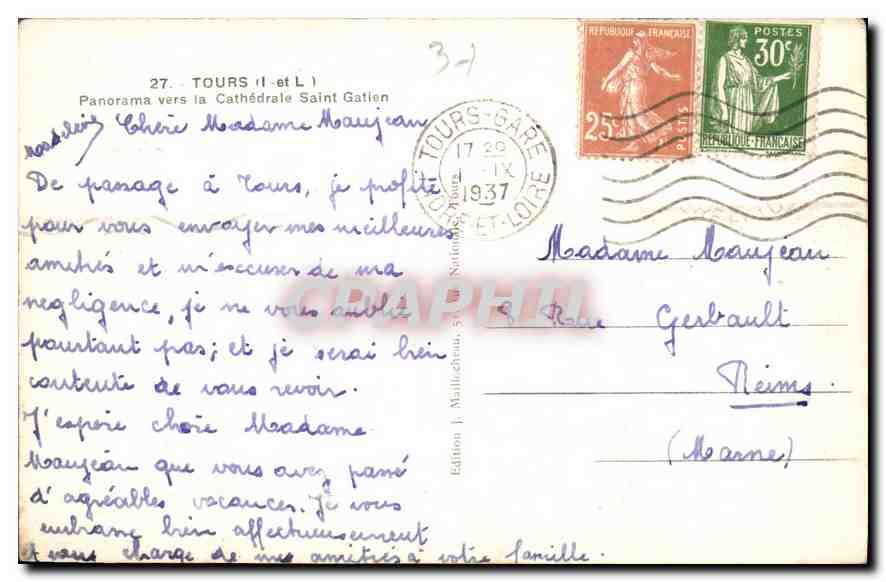 3-1
27. - TOURS (I.-et L.)
Panorama vers la Cathédrale Saint Gatien
Chère Madame Maujean
De passage à Tours, je profite
pour vous envoyer mes meilleures
amitiés et m'excuser de ma
negligence, je ne vous oublie
pourtant pas; et je serai bien
contente de vous revoir.
J'espère chère Madame
Maujean que vous avez passé
d'agréables vacances. Je vous
embrasse bien affectueusement
et vous charge de mes amitiés à votre famille.
Edition J. Maillocheau, 57, Rue Nationale, Tours
TOURS-GARE
17 30
1 - IX
1937
INDRE-ET-LOIRE
REPUBLIQUE FRANÇAISE
25c
POSTES
POSTES
30c
REPUBLIQUE-FRANÇAISE
Madame Maujean
8 Rue Gerbault
Reims
(Marne)
CPAPHIL